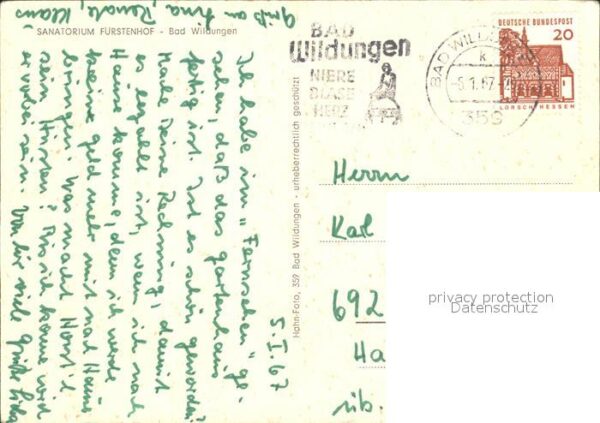 SANATORIUM FÜRSTENHOF - Bad Wildungen
5.I.67
Ich habe im "Fernsehen" ge-
sehen, daß das Gartenhaus
fertig ist. Ist es schön geworden?
Halte Deine Rechnung, damit
es bezahlt ist, wenn ich nach
Hause komme, denn ich werde
keine Geld mehr mit nach Hause
bringen. Was macht Horst'l
sein Husten? Bis ich komme wird
er vorbei sein. Von hir viele Grüße Eure
Gruß an Tina, Renate, Klaus
Hahn-Foto, 359 Bad Wildungen - urheberrechtlich geschützt
BAD
Wildungen
NIERE
BLASE
HERZ
BAD WILDUNGEN
K
-5.1.67
359
DEUTSCHE BUNDESPOST
20
LORSCH/HESSEN
Herrn
Karl
692
Ha
üb.
privacy protection
Datenschutz